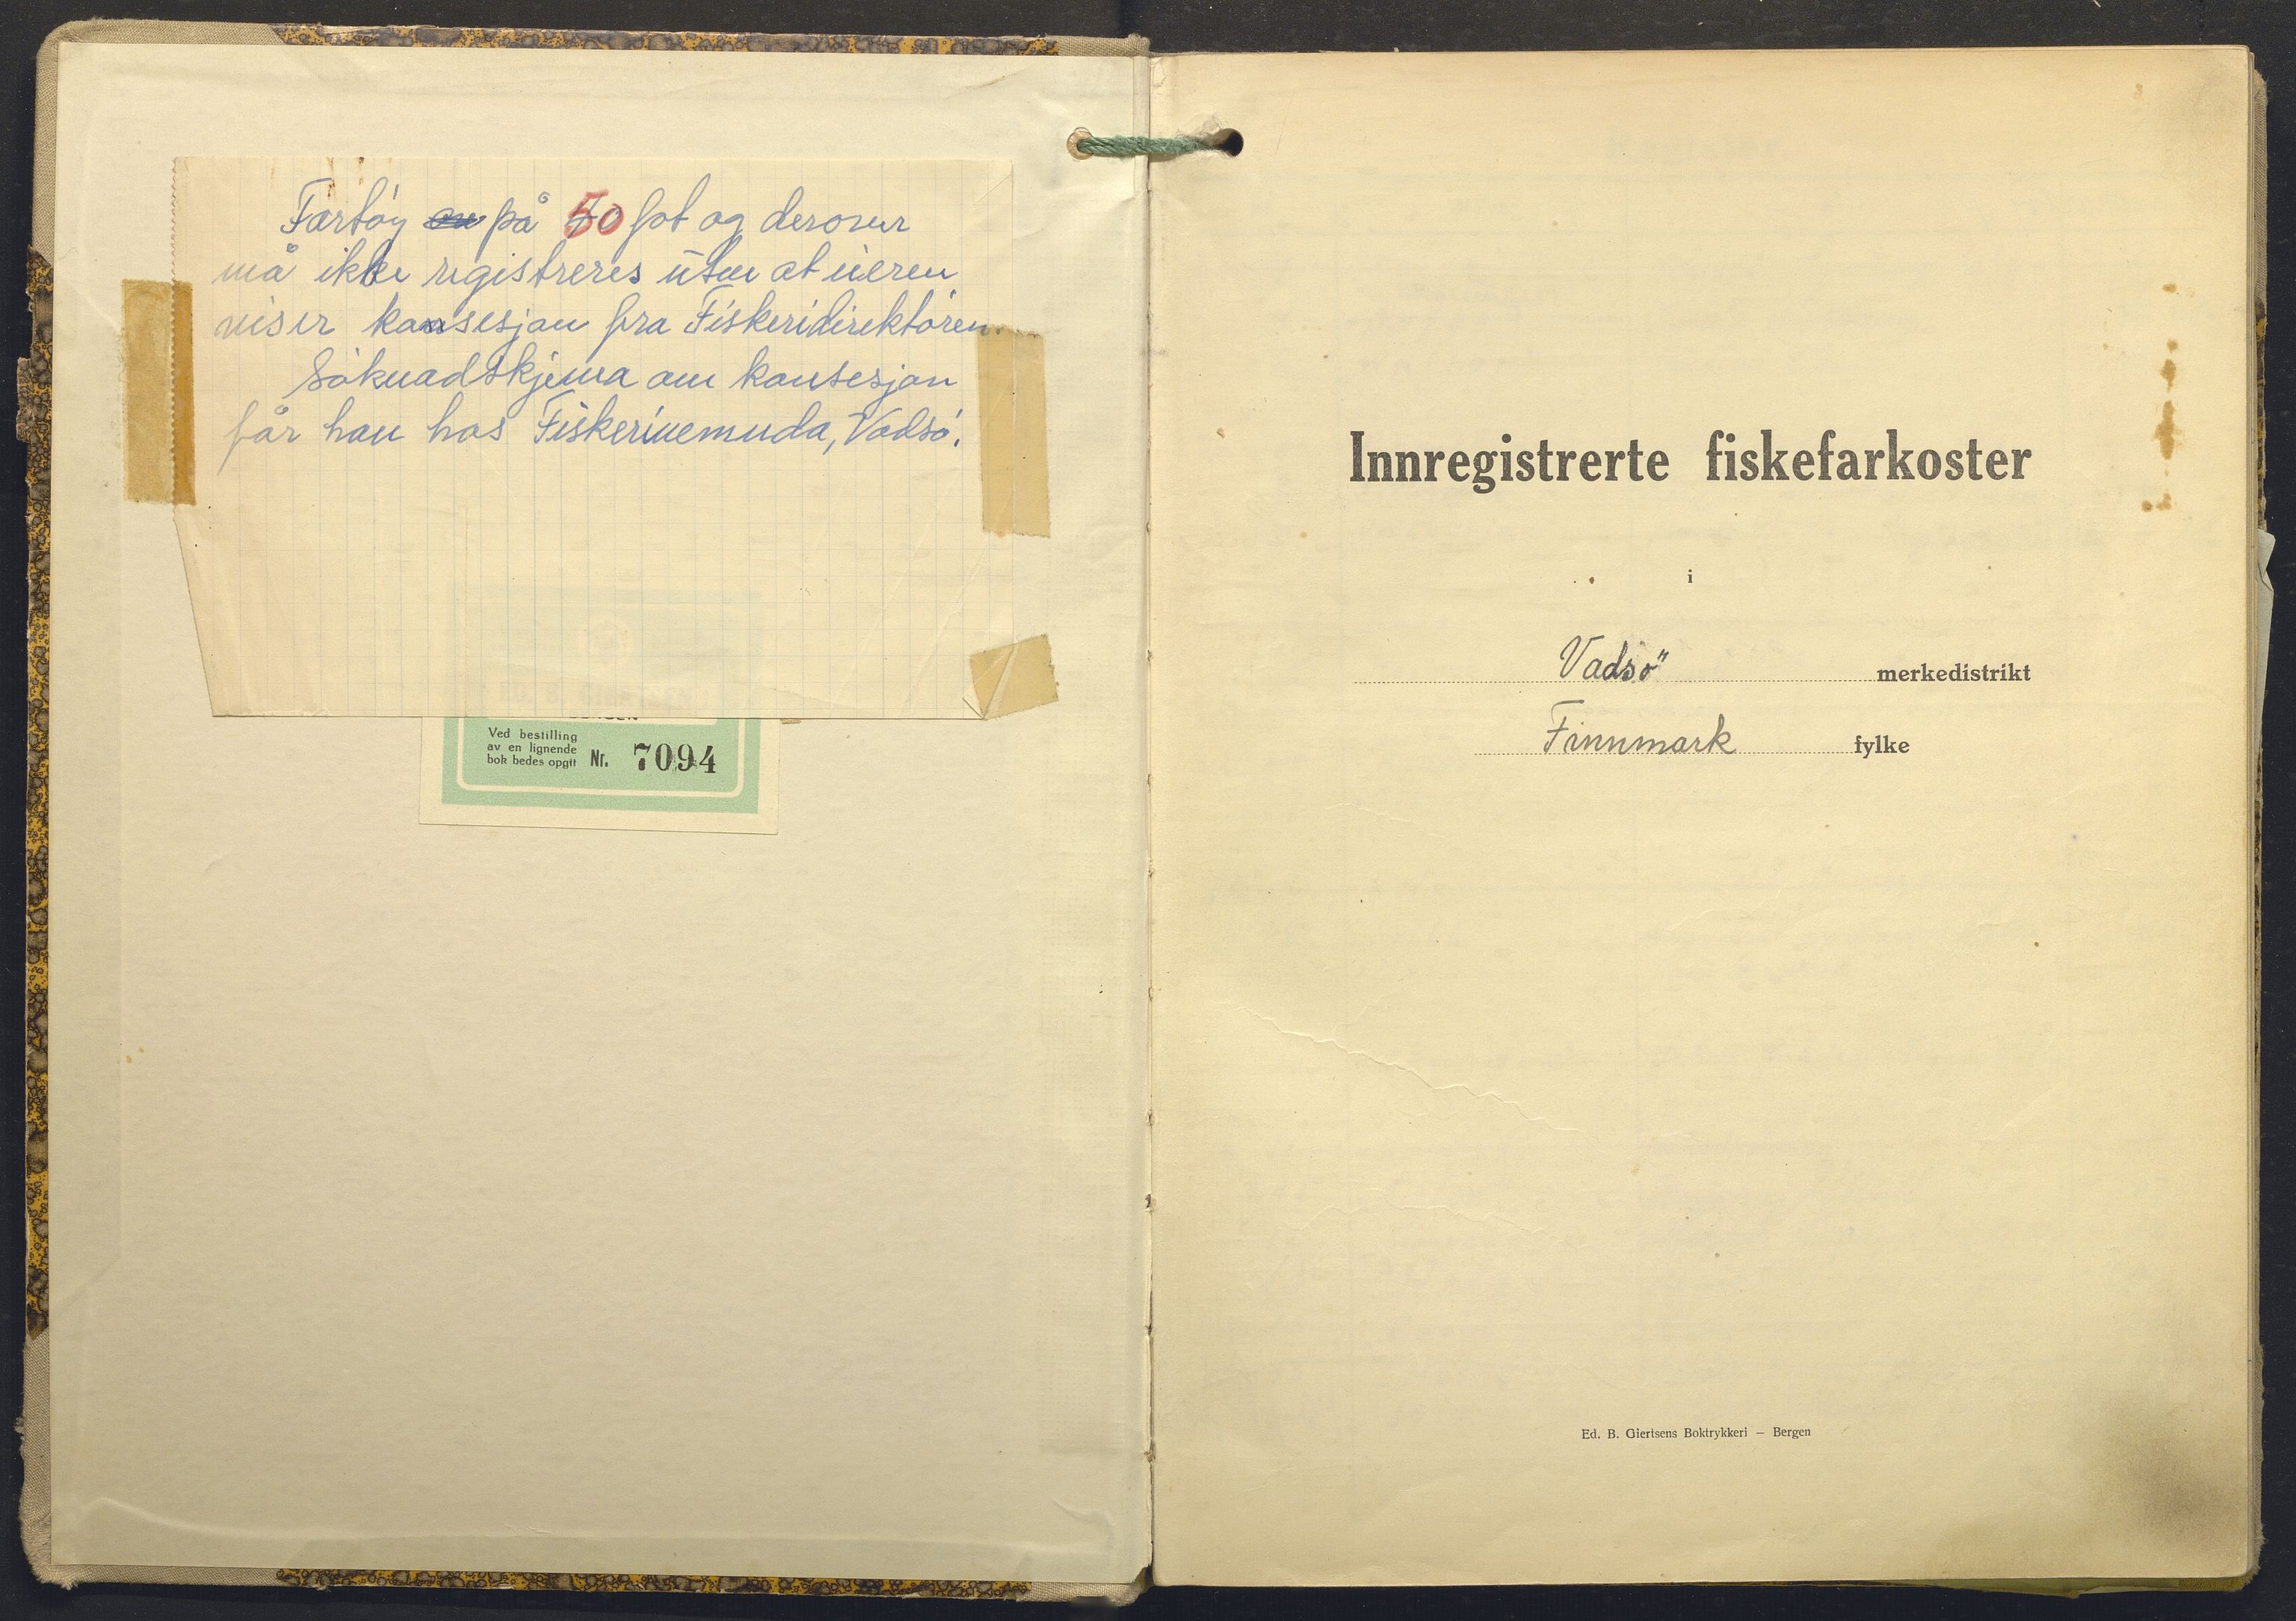 Fartøy på 50 fot og derover
må ikke registreres uten at eieren
viser konsesjon fra Fiskeridirektøren.
Søknadskjema om konsesjon
får han hos Fiskerinemnda, Vadsø.
Ved bestilling
av en lignende
bok bedes opgitt Nr. 7094
Innregistrerte fiskefarkoster
i
Vadsö merkedistrikt
Finnmark fylke
Ed. B. Giertsens Boktrykkeri — Bergen